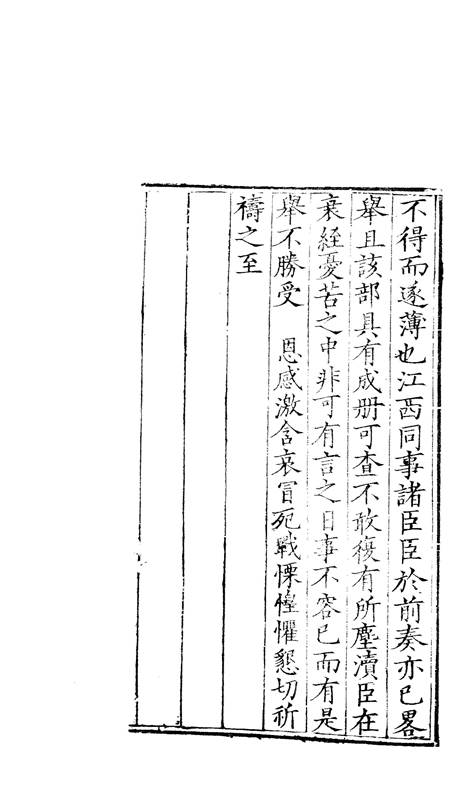 不得而遂薄也江西同事諸臣臣於前奏亦已畧
舉且該部具有成册可查不敢復有所塵瀆臣在
衰絰憂苦之中非可有言之日事不容已而有是
舉不勝受　恩感激含哀冒死戰慄惶懼懇切祈
禱之至